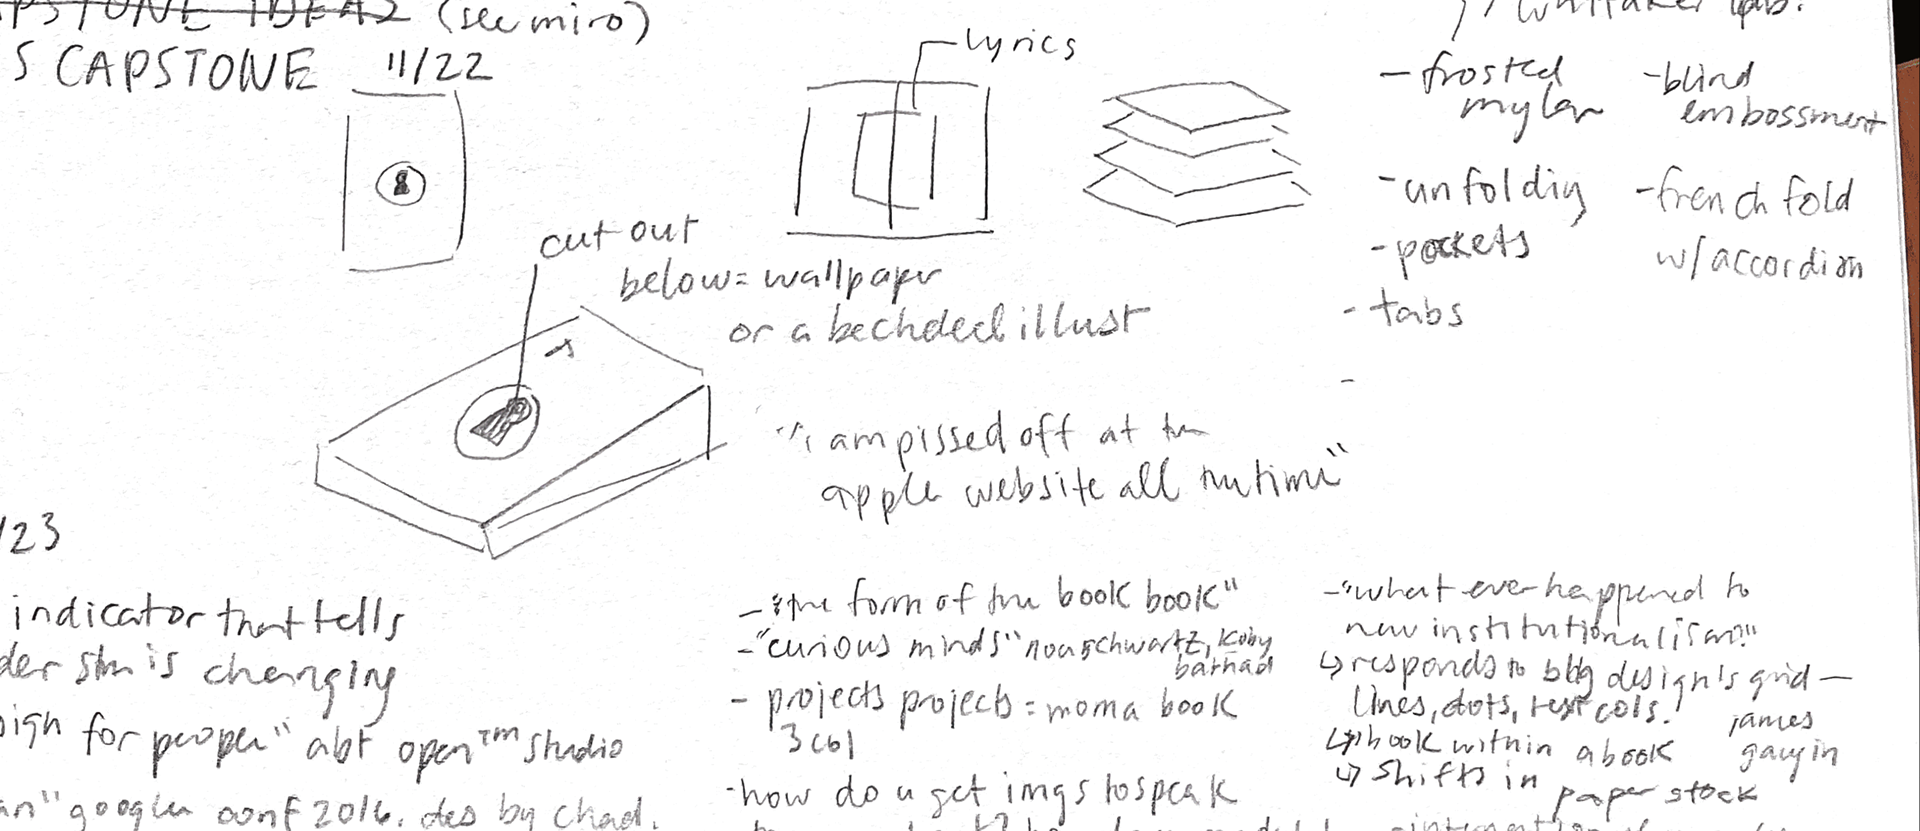 (see miro)
S CAPSTONE 11/22
lyrics
cut out
below = wallpaper
or a bechdel illust
- frosted
mylar
- unfolding
- pockets
- tabs
-
- blind
embossment
- french fold
w/ accordion
"i am pissed off at the
apple website all the time"
/23
indicator that tells
is changing
sign for people" abt open™ studio
" google conf 2016. des by chad.
- "the form of the book book"
- "curious minds" noa schwartz, koby
barhad
- projects projects = moma book
3 col
- how do u get imgs to speak
- "what ever happened to
new institutionalism?"
↳ responds to bbg design's grid —
lines, dots, text cols.
↳ book within a book
↳ shifts in
paper stock
james